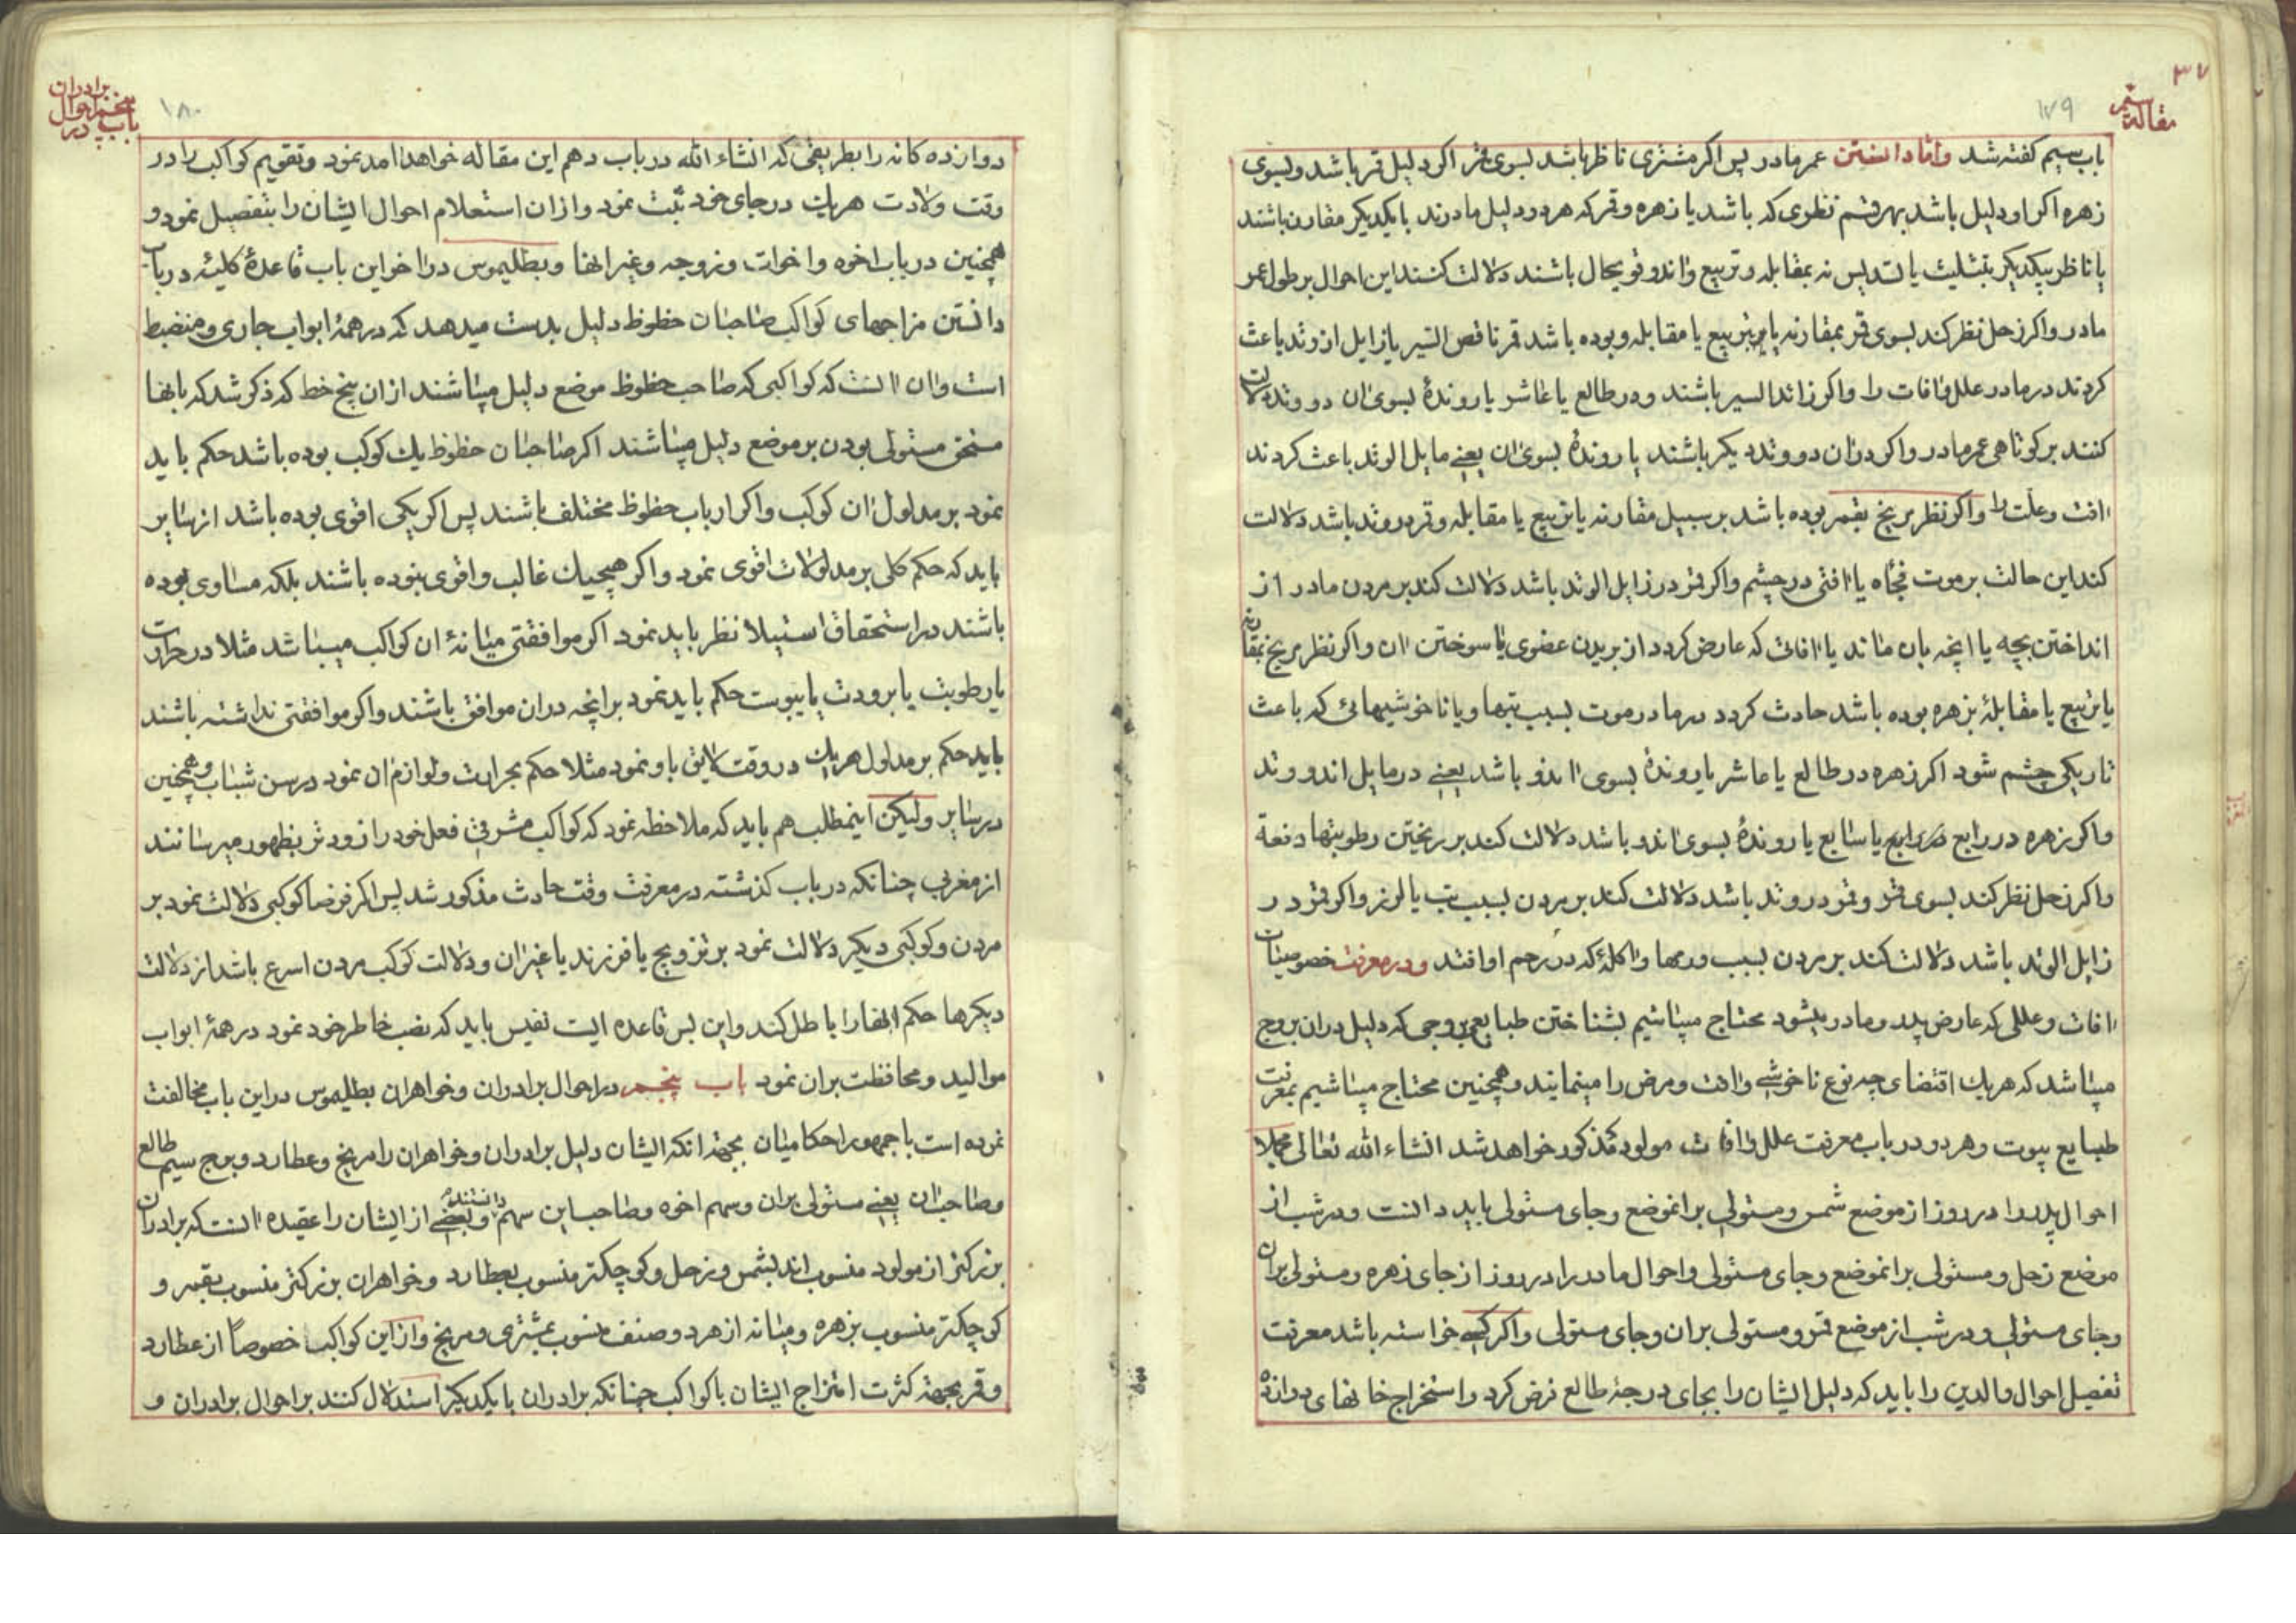 ۳۷
مقاله سیم
۱۷۹
باب سیم کفته شد واما دانستن عمر مادر پس اکر مشتری ناظر باشد بسوی قمر اکر دلیل قمر باشد و بسوی
زهره اکر او دلیل باشد بهر قسم نظری که باشد یا زهره و قمر که هر دو دلیل مادرند با یکدیکر مقارن باشند
یا ناظر بیکدیکر بتثلیث یا تسدیس نه بمقابله و تربیع واندو قوی حال باشند دلالت کنند این احوال بر طول عمر
مادر و اکر زحل نظر کند بسوی قمر بمقارنه یا بتربیع یا مقابله و بوده باشد قمر ناقص السیر یا زایل از وتد باعث
کردند در مادر علل وافات را و اکر زائد السیر باشند و در طالع یا عاشر یا روندهٔ بسوی ان دو وتد دلالت
کنند بر کوتاهی عمر مادر و اکر در ان دو وتد دیکر باشند یا روندهٔ بسوی ان یعنی مایل الوتد باعث کردند
افت و علت را و اکر نظر مریخ بقمر بوده باشد بر سبیل مقارنه یا تربیع یا مقابله و قمر در وتد باشد دلالت
کند این حالت بر موت فجأه یا افتی در چشم و اکر قمر در زایل الوتد باشد دلالت کند بر مردن مادر از
انداختن بچه یا انچه بان ماند یا افاتی که عارض کردد از بریدن عضوی یا سوختن ان و اکر نظر مریخ بمقارنه
یا تربیع یا مقابلهٔ بزهره بوده باشد حادث کردد در مادر موت بسبب تبها و یا ناخوشیهائی که باعث
تاریکی چشم شود اکر زهره در طالع یا عاشر یا روندهٔ بسوی اندو باشد یعنی در مایل اندو وتد
و اکر زهره در رابع در رابع یا سابع یا روندهٔ بسوی اندو باشد دلالت کند بر ریختن رطوبتها دفعة
و اکر زحل نظر کند بسوی قمر و قمر در وتد باشد دلالت کند بر مردن بسبب تب یا لرز و اکر قمر در
زایل الوتد باشد دلالت کند بر مردن بسبب ورمها واکلهٔ که در رحم او افتد و در معرفت خصوصیات
افات و عللی که عارض پدر و مادر میشود محتاج میباشیم بشناختن طبایع بروجی که دلیل در ان بروج
میباشد که هر یک اقتضای چه نوع ناخوشی وافت و مرض را مینمایند و همچنین محتاج میباشیم بمعرفت
طبایع بیوت و هر دو در باب معرفت علل وافات مولود مذکور خواهد شد انشاء الله تعالی مجملا
احوال پدر را در روز از موضع شمس و مستولی بر انموضع و جای مستولی باید دانست و در شب از
موضع زحل و مستولی بر انموضع و جای مستولی و احوال مادر را در روز از جای زهره و مستولی بر ان
و جای مستولی و در شب از موضع قمر و مستولی بر ان و جای مستولی و اکر کسی خواسته باشد معرفت
تفصیل احوال والدین را باید که دلیل ایشان را بجای درجهٔ طالع فرض کرد و استخراج خانهای دوازده
باب پنجم در احوال برادران
۱۸۰
دوازده کانه را بطریقی که انشاء الله در باب دهم این مقاله خواهد امد نمود و تقویم کواکب را در
وقت ولادت هر یک در جای خود ثبت نمود و از ان استعلام احوال ایشان را بتفصیل نمود و
همچنین در باب اخوه و اخوات و زوجه و غیر انها و بطلیموس در اخر این باب قاعدهٔ کلیهٔ در باب
دانستن مزاجهای کواکب صاحبان حظوظ دلیل بدست میدهد که در همهٔ ابواب جاری و منضبط
است و ان انست که کواکبی که صاحب حظوظ موضع دلیل میباشند از ان پنج خط که ذکر شد که بانها
مستحق مستولی بودن بر موضع دلیل میباشند اکر صاحبان حظوظ یک کوکب بوده باشد حکم باید
نمود بر مدلول ان کوکب و اکر ارباب حظوظ مختلف باشند پس اکر یکی اقوی بوده باشد از سایر
باید که حکم کلی بر مدلولات اقوی نمود و اکر هیچیک غالب و اقوی نبوده باشند بلکه مساوی بوده
باشند در استحقاق استیلا نظر باید نمود اکر موافقتی میانهٔ ان کواکب میباشد مثلا در حرارت
یا رطوبت یا برودت یا یبوست حکم باید نمود بر انچه در ان موافق باشند و اکر موافقتی نداشته باشند
باید حکم بر مدلول هر یک در وقت لایق باو نمود مثلا حکم بحرارت و لوازم ان نمود در سن شباب و همچنین
در سایر ولیکن اینمطلب هم باید که ملاحظه نمود که کواکب مشرقی فعل خود را زودتر بظهور میرسانند
از مغربی چنانکه در باب کذشته در معرفت وقت حادث مذکور شد پس اکر فرضا کوکبی دلالت نمود بر
مردن و کوکبی دیکر دلالت نمود بر تزویج یا فرزند یا غیر ان و دلالت کوکب مردن اسرع باشد از دلالت
دیکرها حکم انها را باطل کند و این بس قاعده ایست نفیس باید که نصب خاطر خود نمود در همهٔ ابواب
موالید و محافظت بر ان نمود باب پنجم در احوال برادران و خواهران بطلیموس در این باب مخالفت
نموده است با جمهور احکامیان بجهة انکه ایشان دلیل برادران و خواهران را مریخ و عطارد و برج سیم طالع
و صاحب ان یعنی مستولی بر ان و سهم اخوه و صاحب این سهم دانسته‌اند و بعضی از ایشان را عقیده انست که برادران
بزرکتر از مولود منسوب اند بشمس و زحل و کوچکتر منسوب بعطارد و خواهران بزرکتر منسوب بقمر و
کوچکتر منسوب بزهره و میانه از هر دو صنف منسوب بمشتری و مریخ و از این کواکب خصوصاً از عطارد
و قمر بجهة کثرت امتزاج ایشان با کواکب چنانکه برادران با یکدیکر استدلال کنند بر احوال برادران و